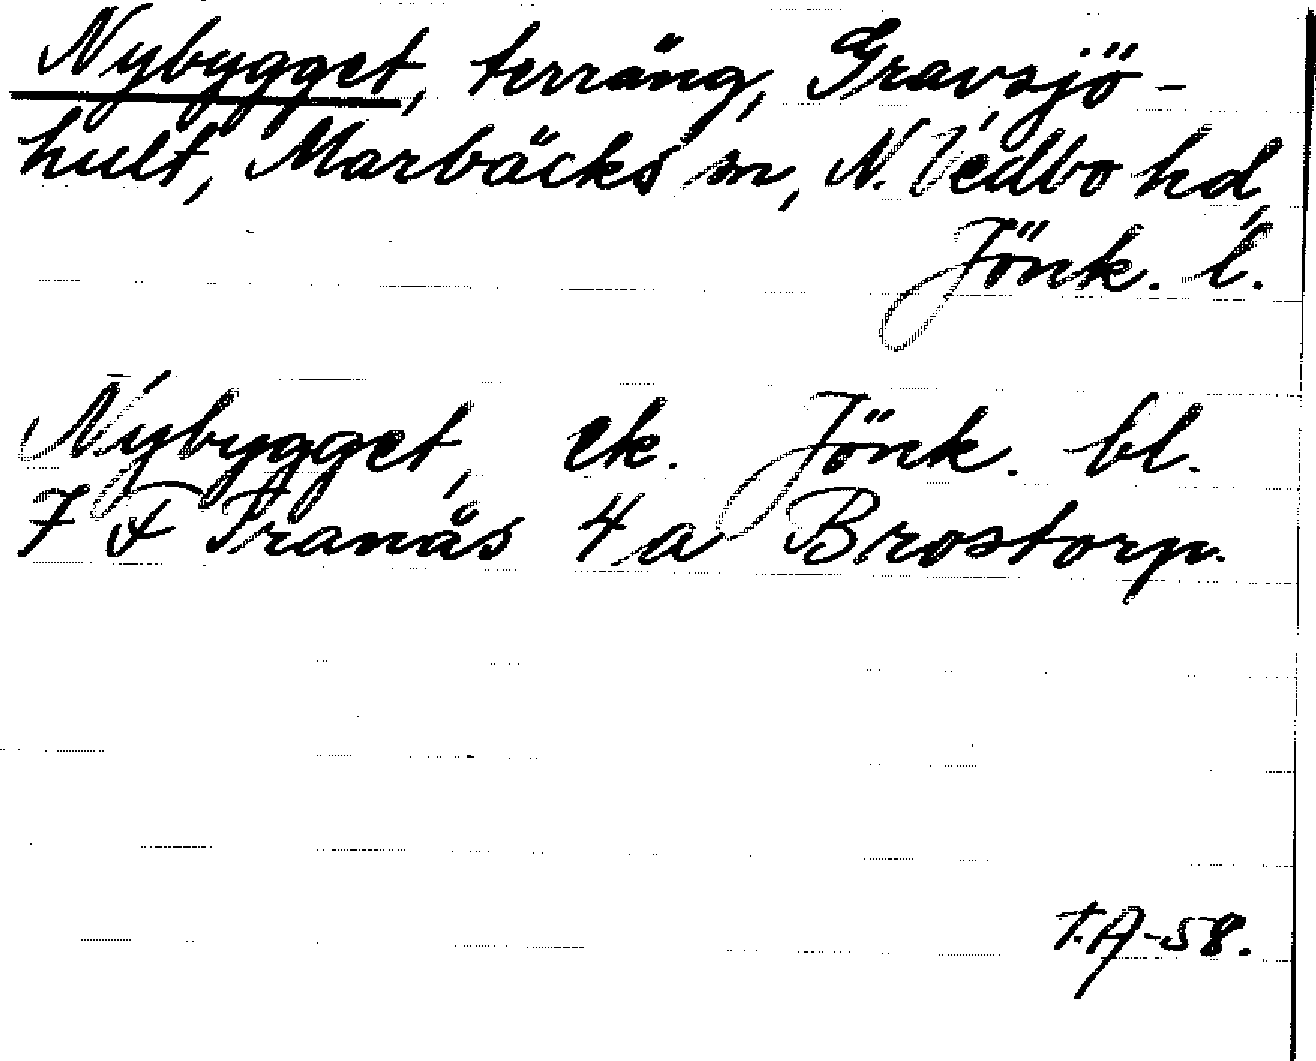 Nybygget, terräng, Gravsjö-
hult, Marbäcks sn, N. Vedbo hd,
Jönk. l.
Nybygget, ek. Jönk. bl.
7 F Tranås 4 a Brostorp.
T.A-58.